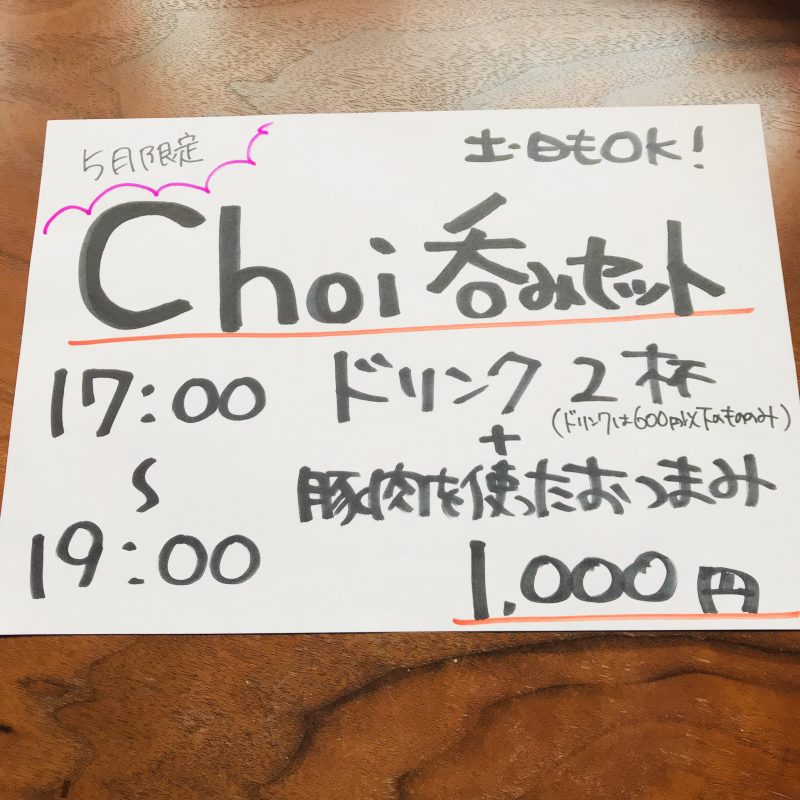 5月限定
土・日もOK!
Choi 呑みセット
17:00
〜
19:00
ドリンク 2杯
(ドリンクは600円以下のもののみ)
+
豚肉を使ったおつまみ
1,000円